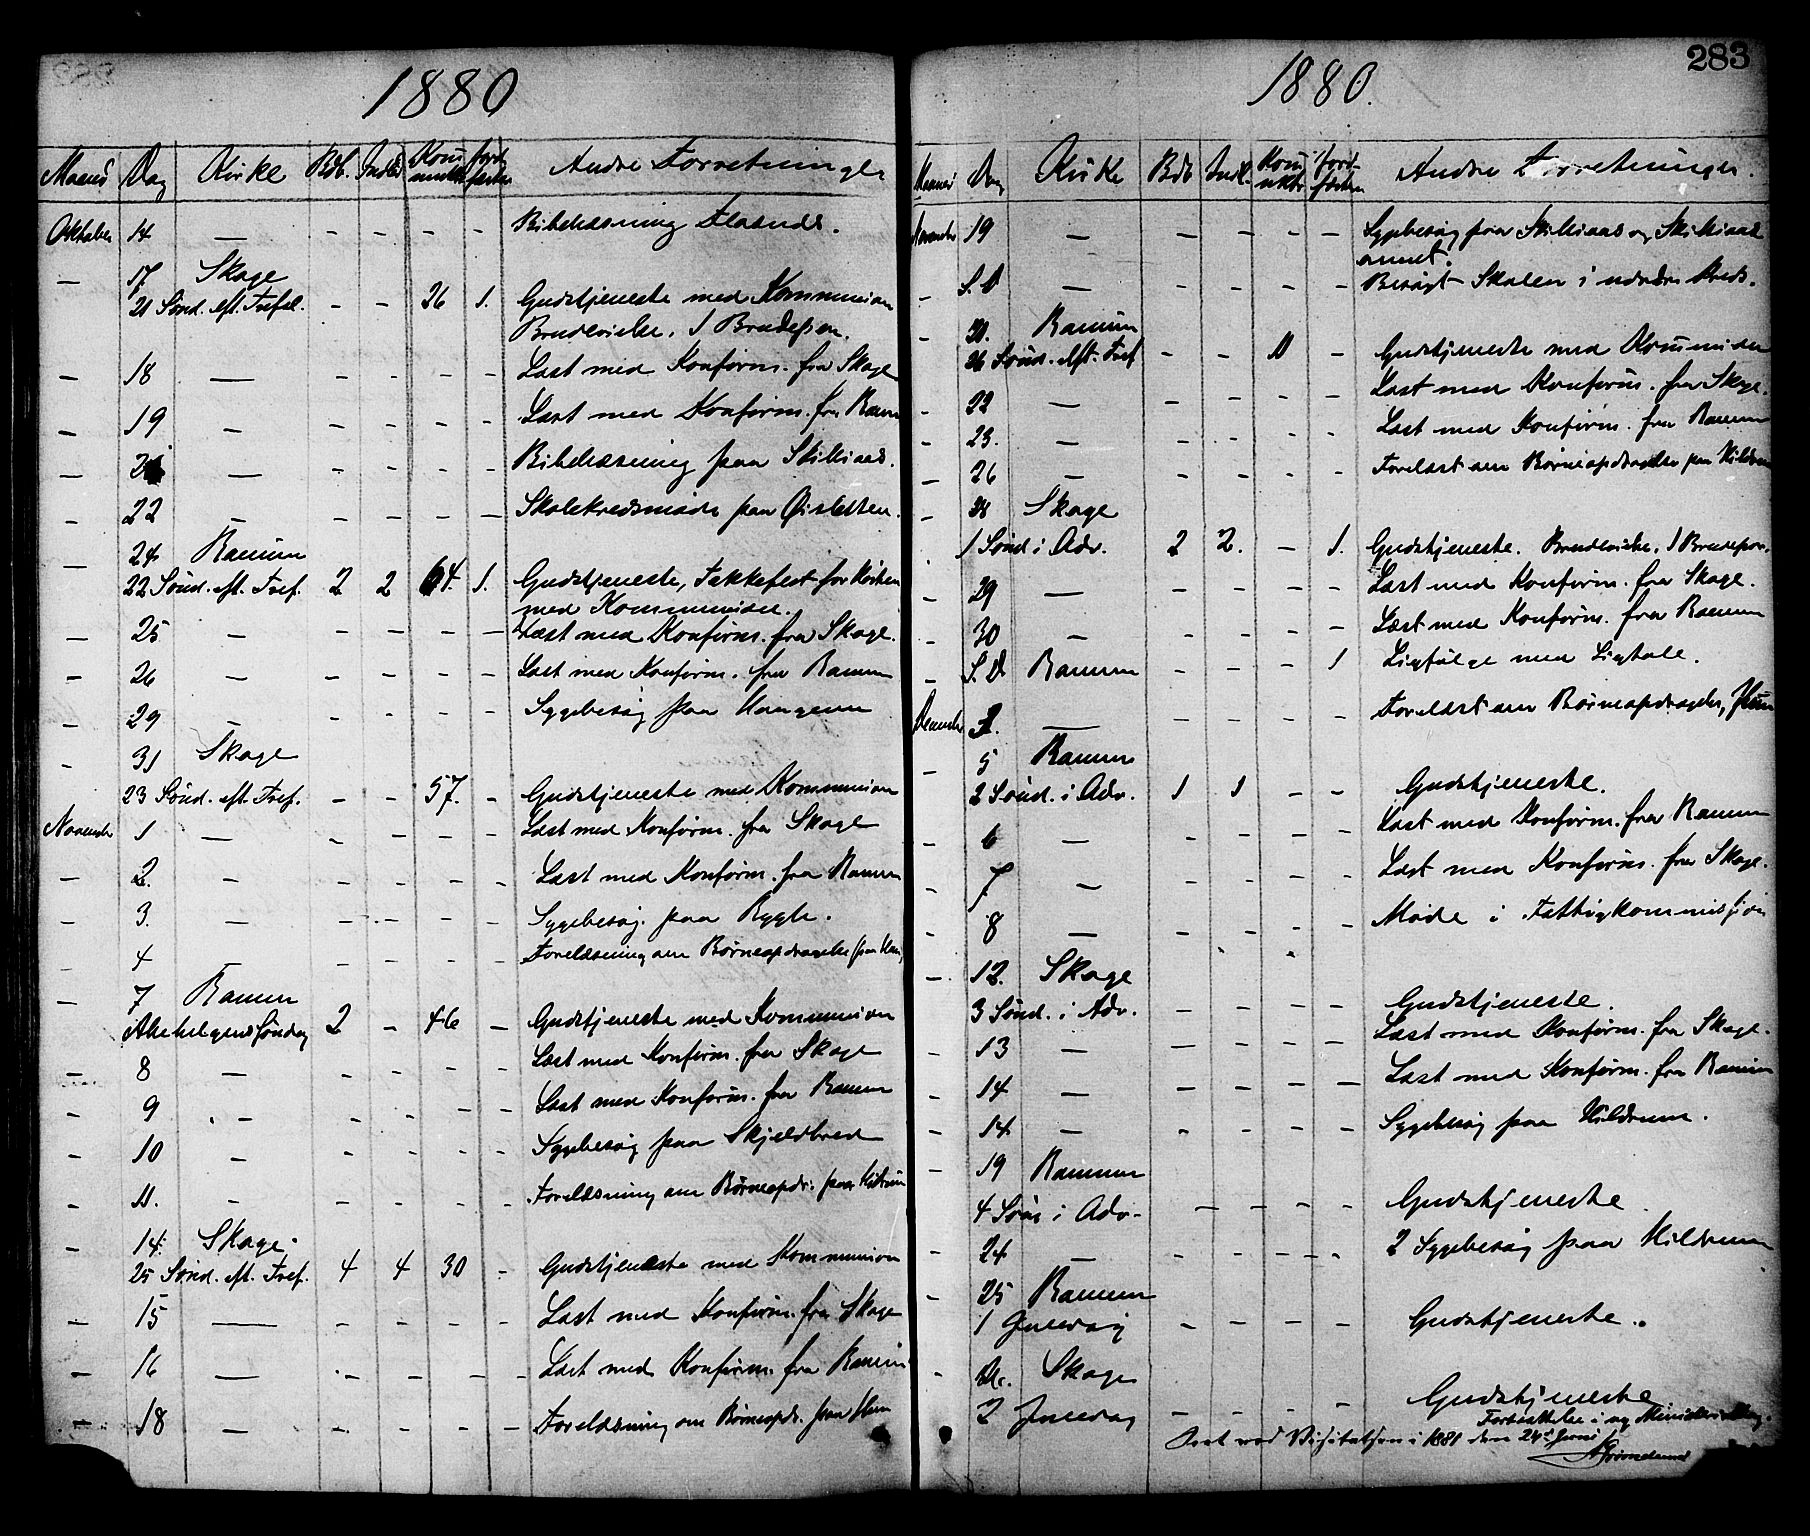 1880
Maaned Dag Kirke Bdb. Indl. Kommunik Andre Forretninger
Oktober 14 — - - - - Bibellæsning
— 17 Skage
21 Sønd. eft. Tref. - - 26 1. Gudstjeneste med Kommunion
Brudevielse, 1 Brudepar.
— 18 — - - - - Læst med Konfirm. fra Skage
— 19 — - - - - Læst med Konfirm. fra Ranum
— — - - - - Bibellæsning paa Skilliaas.
— 22 — - - - - Skolekredsmøde paa Øisletten.
— 24 Ranum
22 Sønd. eft. Tref. 2 2 64. 1. Gudstjeneste, Takkefest for Høsten
med Kommunion.
— 25 — - - - - Læst med Konfirm. fra Skage.
— 26 — - - - - Læst med Konfirm. fra Ranum
— 29 — - - - - Sygebesøg paa
— 31 Skage
23 Sønd. eft. Tref. - - 57. - Gudstjeneste med Kommunion
November 1 — - - - - Læst med Konfirm. fra Skage
— 2. — - - - - Læst med Konfirm. fra Ranum
— 3. — - - - - Sygebesøg. paa Rygh.
— 4 — - - - - Forelæsning om Børneopdragelse paa
— 7 Ranum
Allehelgens Søndag 2 - 46 - Gudstjeneste med Kommunion
— 8 — - - - - Læst med Konfirm. fra Skage
— 9 — - - - - Læst med Konfirm. fra Ranum
— 10 — - - - - Sygebesøg paa Skjeldbred
— 11. — - - - - Forelæsning om Børneopdr. paa Hildrum
— 14. Skage.
25 Sønd. eft. Tref. 4 4 30 - Gudstjeneste med Kommunion
— 15 — - - - - Læst med Konfirm. fra Skage
— 16 — - - - - Læst med Konfirm. fra Ranum
— 18 — - - - - Forelæsning om Børneopdr. paa Hun
283
1880.
Maaned Dag Kirke Bdb Indl. Andre Forretninger.
November 19 — - - - - Sygebesøg paa Skilliaas og Skilliaas
- S. D — - - - - Besøgt Skolen i nedre Kreds.
- 21. Ranum
26 Sønd. eft. Tref - - 11 - Gudstjeneste med Kommunion
- 22 — - - - - Læst med Konfirm. fra Skage.
- 23. — - - - - Læst med Konfirm. fra Ranum
- 26 — - - - - Forelæst om Børneopdragelse paa Hildrum
- 28 Skage
1 Sønd i Adv. 2 2. - 1. Gudstjeneste. Brudevielse, 1 Brudepar.
- 29 — - - - - Læst med Konfirm. fra Skage.
- 30 — - - - - Læst med Konfirm. fra Ranum
- S. D Ranum - - - 1 Ligfølge med Ligtale.
December 2. — - - - - Forelæst om Børneopdragelse, Hun
- 5 Ranum
2 Sønd. i Adv. 1 1 - - Gudstjeneste.
- 6 — - - - - Læst med Konfirm. fra Ranum
- 7 — - - - - Læst med Konfirm. fra Skage.
- 8 — - - - - Møde i Fattigkommission
- 12. Skage
3 Sønd. i Adv. - - - - Gudstjeneste.
- 13 — - - - - Læst med Konfirm. fra Skage.
- 14 — - - - - Læst med Konfirm. fra Ranum
- 14 — - - - - Sygebesøg paa Hildrum.
- 19 Ranum
4 Søn i Adv. - - - - Gudstjeneste
- 24 — - - - - 2 Sygebesøg paa Hildrum
- 25 Ranum
1 Juledag - - - - Gudstjeneste.
- 26. Skage
2 Juledag - - - - Gudstjeneste
Fortsættelse i ny Ministerialbog.
Seet ved Visitatsen i 1881 den 24de Juni